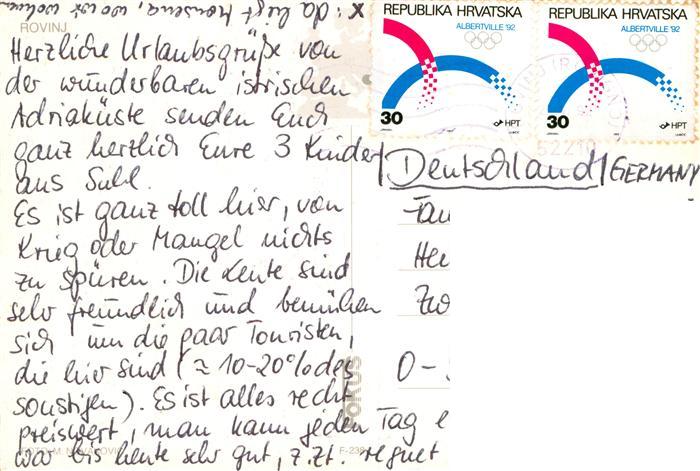 x: da liegt Monsena, wo wir wohnen
ROVINJ
Herzliche Urlaubsgrüße von
der wunderbaren istrischen
Adriaküste senden Euch
ganz herzlich Eure 3 Kinder
aus Suhl.
Es ist ganz toll hier, von
Krieg oder Mangel nichts
zu spüren. Die Leute sind
sehr freundlich und bemühen
sich um die paar Touristen,
die hier sind (≈ 10-20% des
sonstigen). Es ist alles recht
preiswert, man kann jeden Tag e
war bis heute sehr gut, z.Zt. regnet
REPUBLIKA HRVATSKA
ALBERTVILLE '92
30
HPT
REPUBLIKA HRVATSKA
ALBERTVILLE '92
30
HPT
52210
/Deutschland/GERMANY
Fau
Her
Zw
0-
FOKUS
F-238